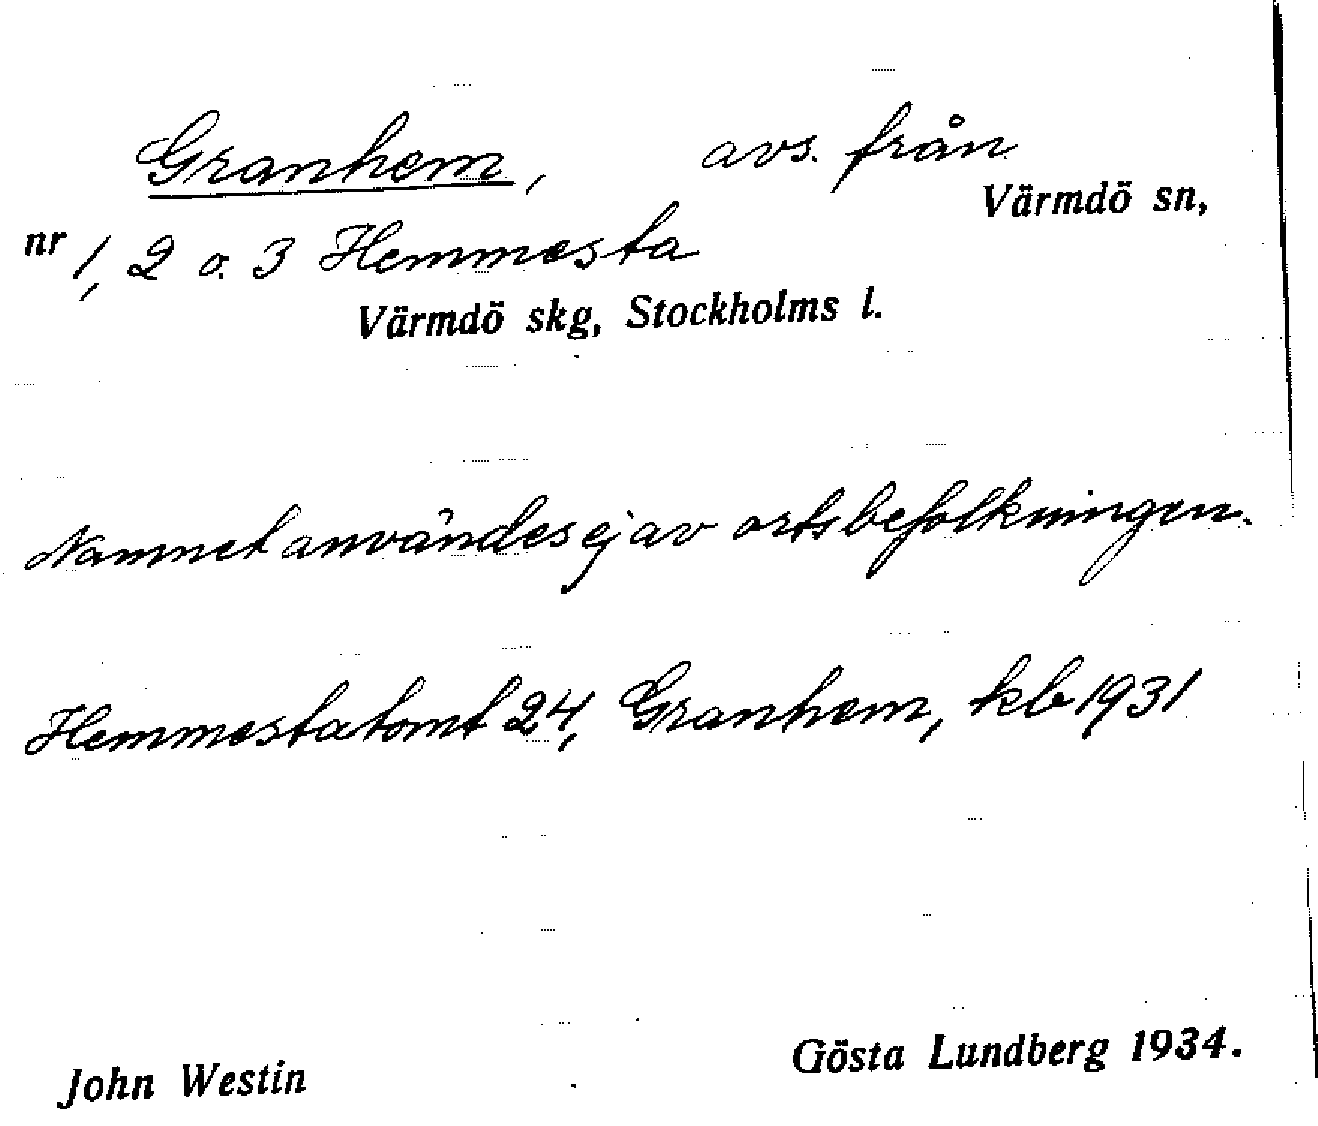 Granhem, avs. från
Värmdö sn,
nr 1, 2 o. 3 Hemmesta
Värmdö skg, Stockholms l.
Namnet användes ej av ortsbefolkningen.
Hemmestatomt 24, Granhem, kb 1931
Gösta Lundberg 1934.
John Westin